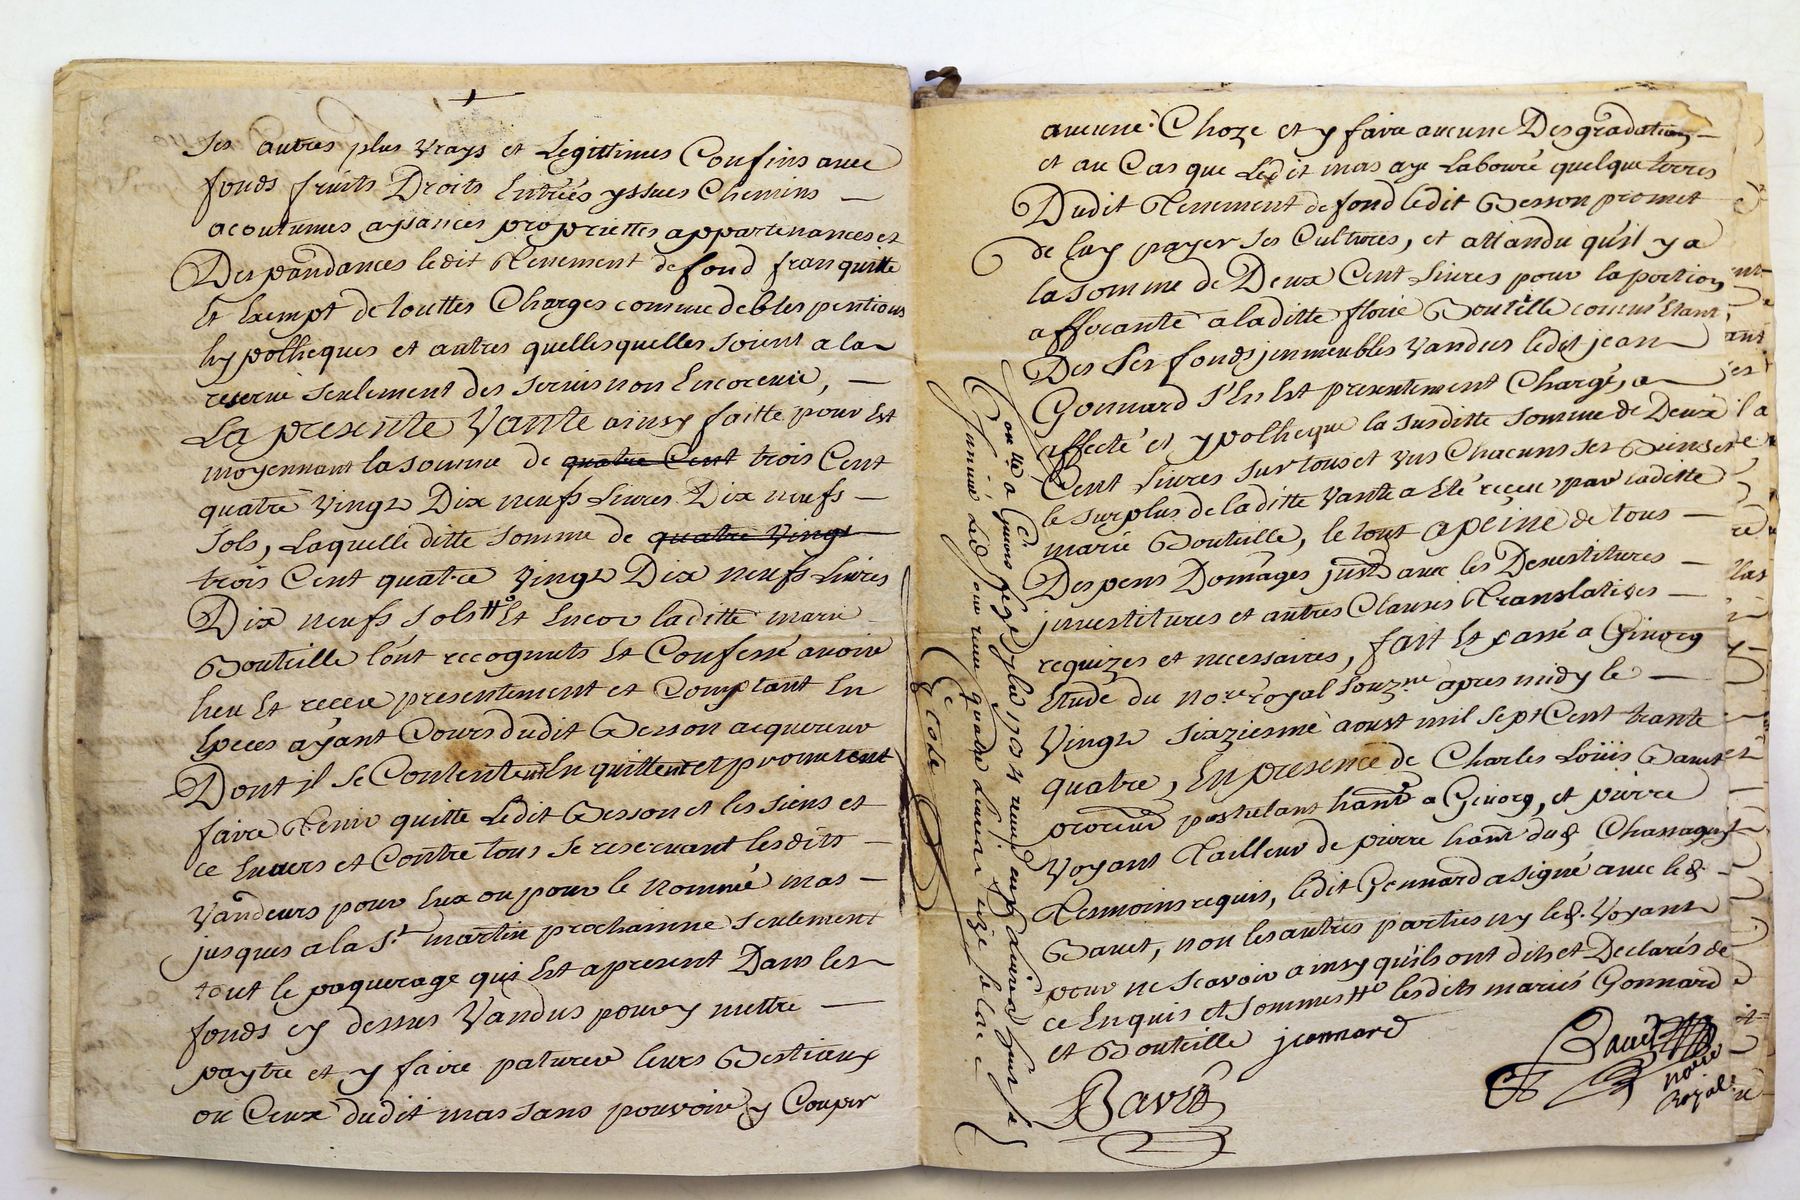 ses autres plus vrays et Legittimes Confins avec
fonds fruits Droits Entreés yssues Chemins —
acoutumés aysances propriettes appartenances et
Despandances ledit Tennement de fond franquitte
Et Exempt de touttes Charges comme debtes pentions
hypotheques et autres quelles quelles soient a la
reserve seulement des servis non Encore
La presente Vante ainsy faitte pour Est
moyennant la somme de quatre Cent trois Cent
quatre Vingt Dix neufs Livres Dix neufs —
sols, Laquelle ditte somme de quatre Vingt
trois Cent quatre Vingt Dix neufs Livres
Dix neufs sols Et Encor laditte marie
Bouteille l'ont recognuts Et Confessé avoir
heu Et receu presentement et Comptant En
Speces ayant Cours dudit Besson acquereur
Dont il se Contentent En quittent et prometent
faire Tenir quitte Ledit Besson et les siens et
ce Envers et Contre tous se reservant lesdits —
Vandeurs pour Eux ou pour le Nommé mas —
jusques a la St. martin prochainne seulement
tout le paquerage qui Est apresent Dans les
fonds cy dessus Vandus pouvoy mettre —
paytre et y faire paturer leurs Bestiaux
ou Ceux dudit mas sans pouvoir y Couper
aucune Choze et y faire aucune Desgradation —
et au Cas que Ledit mas aye Labouré quelque terres
Dudit Tennement de fond ledit Besson promet
de luy payer ses Cultures, et attandu qu'il y a
la somme de Deux Cent Livres pour la portion
afferante a laditte florie Bouteille comm' Etant
Des Ses fonds jmmeubles Vandus ledit jean
Gonnard s'En Est presentement Chargé, a
affecté et ypotheque la susditte somme de Deux
Cent Livres sur tous et uns Chacuns ses Biens et
le surplus de laditte Vante a Eté reçeu par laditte
marie Bouteille, le tout a peine de tous —
Despens Domages juste avec les Devestitures —
jnvestitures et autres Clauses Translatives —
requizes et necessaires, fait Et passé a Givorg
Etude du Nore. royal souzné apres midy le —
Vingt sixziesme aoust mil sept Cent trante
quatre, En presence de Charles Loüis Bavet
procureur postulant hant. a Givorg, et pierre
Voyant Tailleur de pierre hant. dud. Chassagny
Tesmoins requis, ledit Gonnard a signé avec led.
Bavet, non les autres parties ny led. Voyant
pour ne scavoir ainsy qu'ils ont dits et Declarés de
ce Enquis et sommes lesdits mariés Gonnard
et Bouteille jeonnard
Bavet
Bavet
Notre
Royal
Conlle a Givors